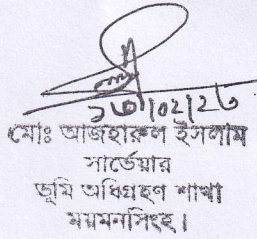 মোঃ আজহারুল ইসলাম
সার্ভেয়ার
ভূমি অধিগ্রহণ শাখা
ময়মনসিংহ।